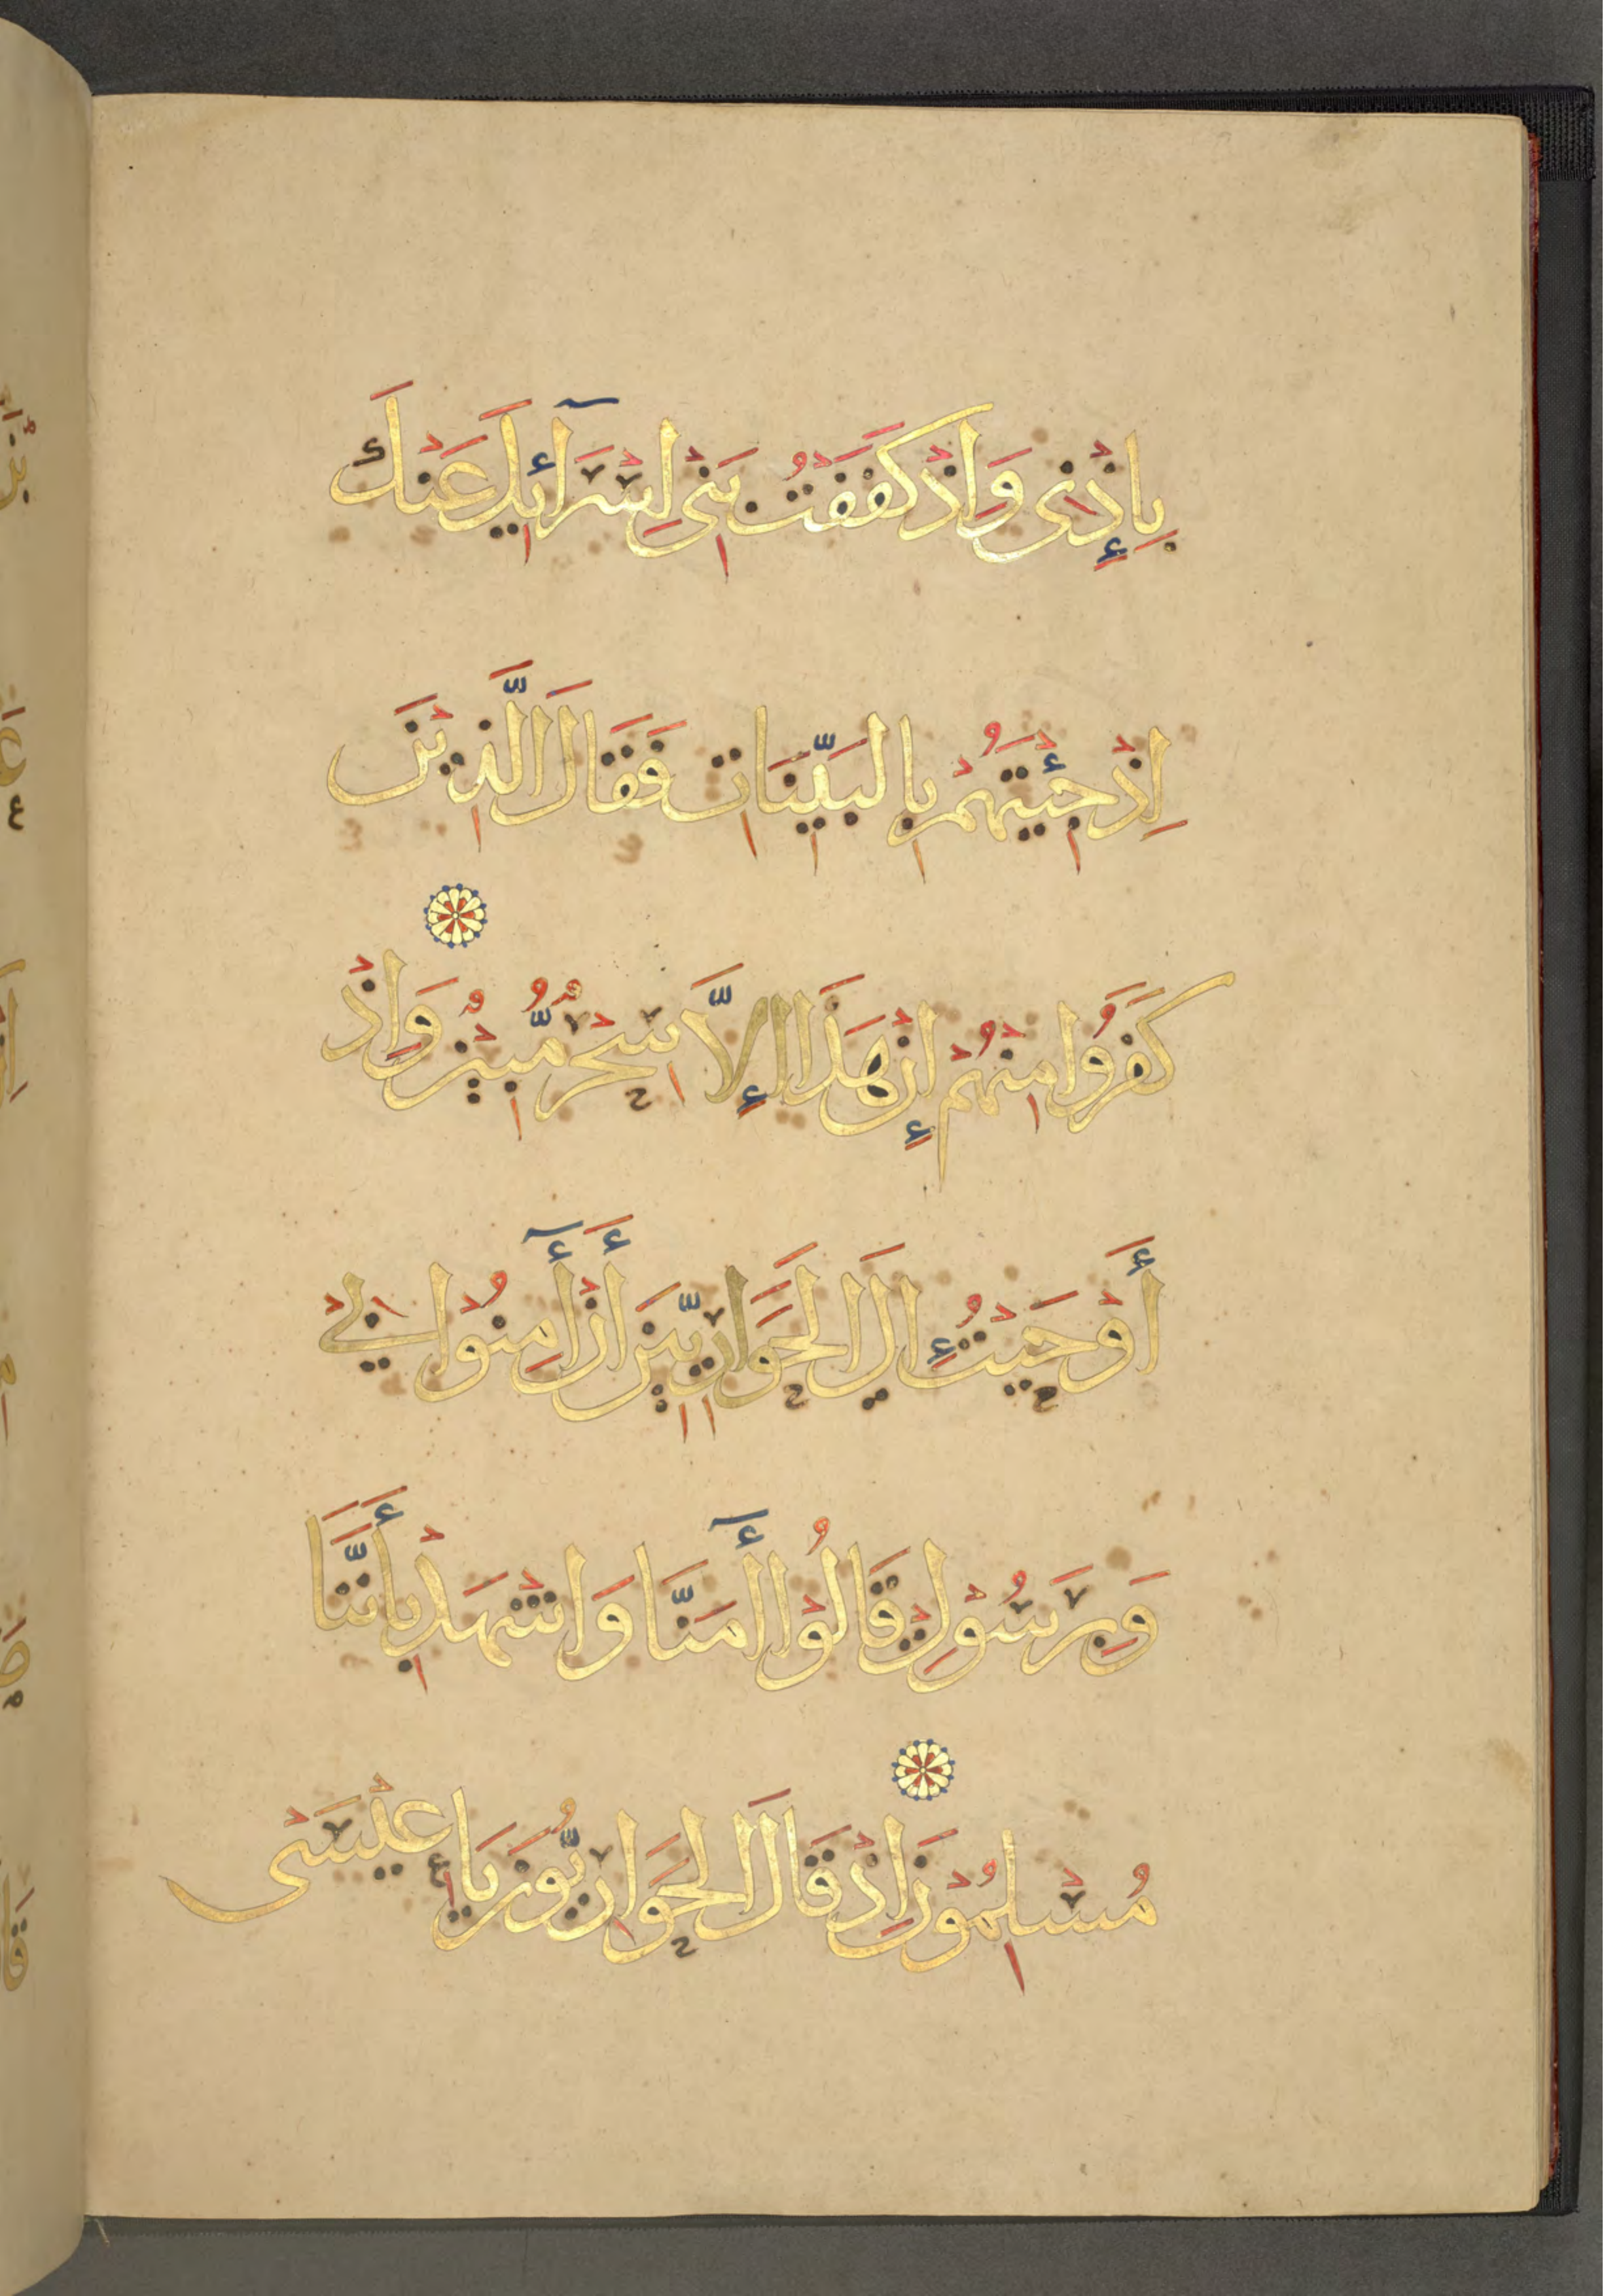 بِإِذْنِى وَإِذْ كَفَفْتُ بَنِى إِسْرَآئِيلَ عَنْكَ
إِذْ جِئْتَهُمْ بِالْبَيِّنَاتِ فَقَالَ الَّذِيْنَ
كَفَرُوا مِنْهُمْ إِنْ هَذَا إِلاَّ سِحْرٌ مُّبِيْنٌ وَإِذْ
أَوْحَيْتُ إِلَى الْحَوَارِيِّيْنَ أَنْ أَٓمِنُوْا بِيْ
وَبِرَسُوْلِيْ قَالُوْا أَٓمَنَّا وَاشْهَدْ بِأَنَّنَا
مُسْلِمُوْنَ إِذْ قَالَ الْحَوَارِيُّوْنَ يَا عِيْسَى